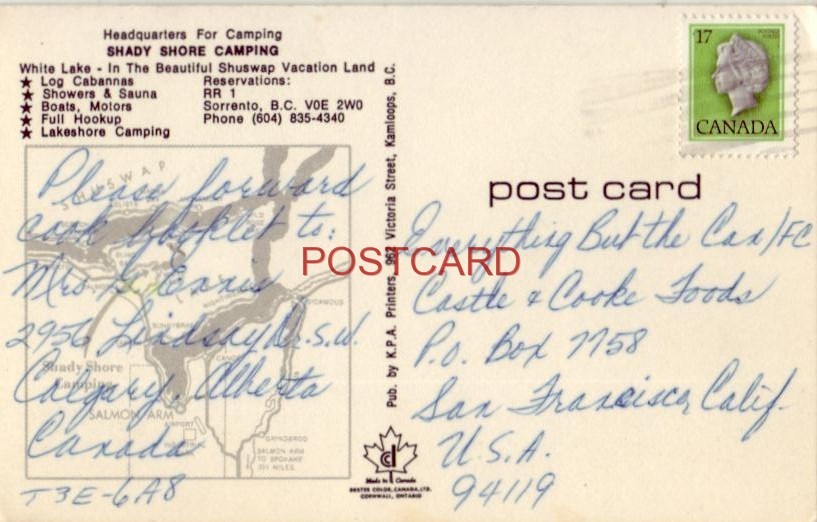 Headquarters For Camping
SHADY SHORE CAMPING
White Lake - In The Beautiful Shuswap Vacation Land
★ Log Cabannas
★ Showers & Sauna
★ Boats, Motors
★ Full Hookup
★ Lakeshore Camping
Reservations:
RR 1
Sorrento, B.C. V0E 2W0
Phone (604) 835-4340
17
CANADA
post card
Please forward
cook booklet to:
Mrs. Ennis
2956 Lindsay Dr. S.W.
Calgary, Alberta
Canada
T3E-6A8
SHUSWAP
LAKE
SICAMOUS
Shady Shore
Camping
SALMON ARM
AIRPORT
INDUSTRIAL
GRINDROD
SALMON ARM
TO SPOKANE
MILES
Pub. by K.P.A. Printers, 962 Victoria Street, Kamloops, B.C.
POSTCARD
Everything But the Can/FC
Castle & Cooke Foods
P.O. Box 7758
San Francisco, Calif.
U.S.A.
94119
Made in Canada
DEXTER COLOR, CANADA, LTD.
CORNWALL, ONTARIO